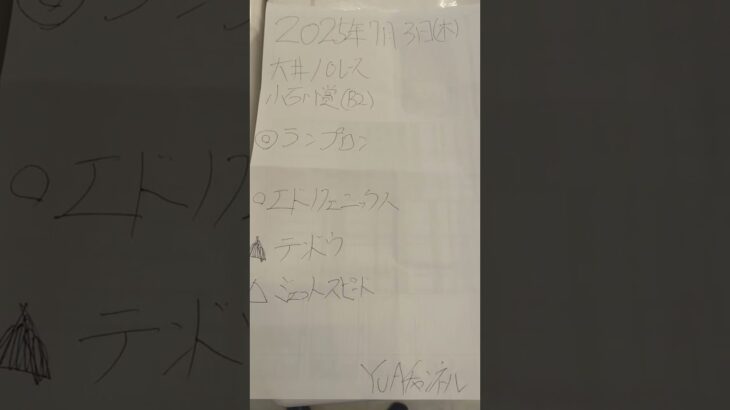 2025年7月3日(木)
大井10レース
小石川賞(B2)
◎ランプロン
○エドノフェニックス
▲テンドウ
△ジェットスピード
YUAチャンネル